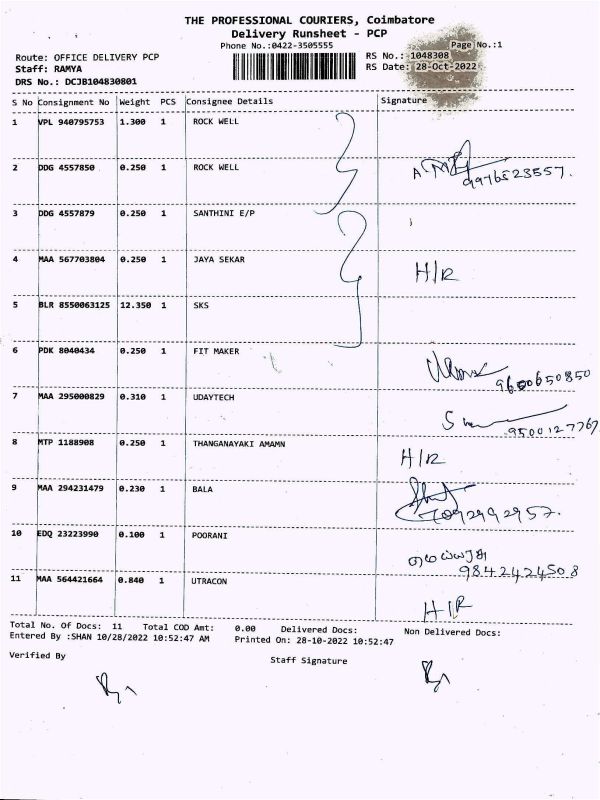 THE PROFESSIONAL COURIERS, Coimbatore
Delivery Runsheet - PCP
Phone No.:0422-3505555
Page No.:1
Route: OFFICE DELIVERY PCP
RS No.: 1048308
Staff: RAMYA
RS Date: 28-Oct-2022
DRS No.: DCJB104830801
S No Consignment No Weight PCS Consignee Details Signature
1 VPL 940795753 1.300 1 ROCK WELL
2 DDG 4557850 0.250 1 ROCK WELL
9976523557.
3 DDG 4557879 0.250 1 SANTHINI E/P
4 MAA 567703804 0.250 1 JAYA SEKAR H/R
5 BLR 8550063125 12.350 1 SKS
6 PDK 8040434 0.250 1 FIT MAKER
9600650850
7 MAA 295000829 0.310 1 UDAYTECH
9500127767
8 MTP 1188908 0.250 1 THANGANAYAKI AMAMN H/R
9 MAA 294231479 0.230 1 BALA
7092992957.
10 EDQ 23223990 0.100 1 POORANI
9842424508
11 MAA 564421664 0.840 1 UTRACON H/R
Total No. Of Docs: 11 Total COD Amt: 0.00 Delivered Docs: Non Delivered Docs:
Entered By :SHAN 10/28/2022 10:52:47 AM Printed On: 28-10-2022 10:52:47
Verified By Staff Signature